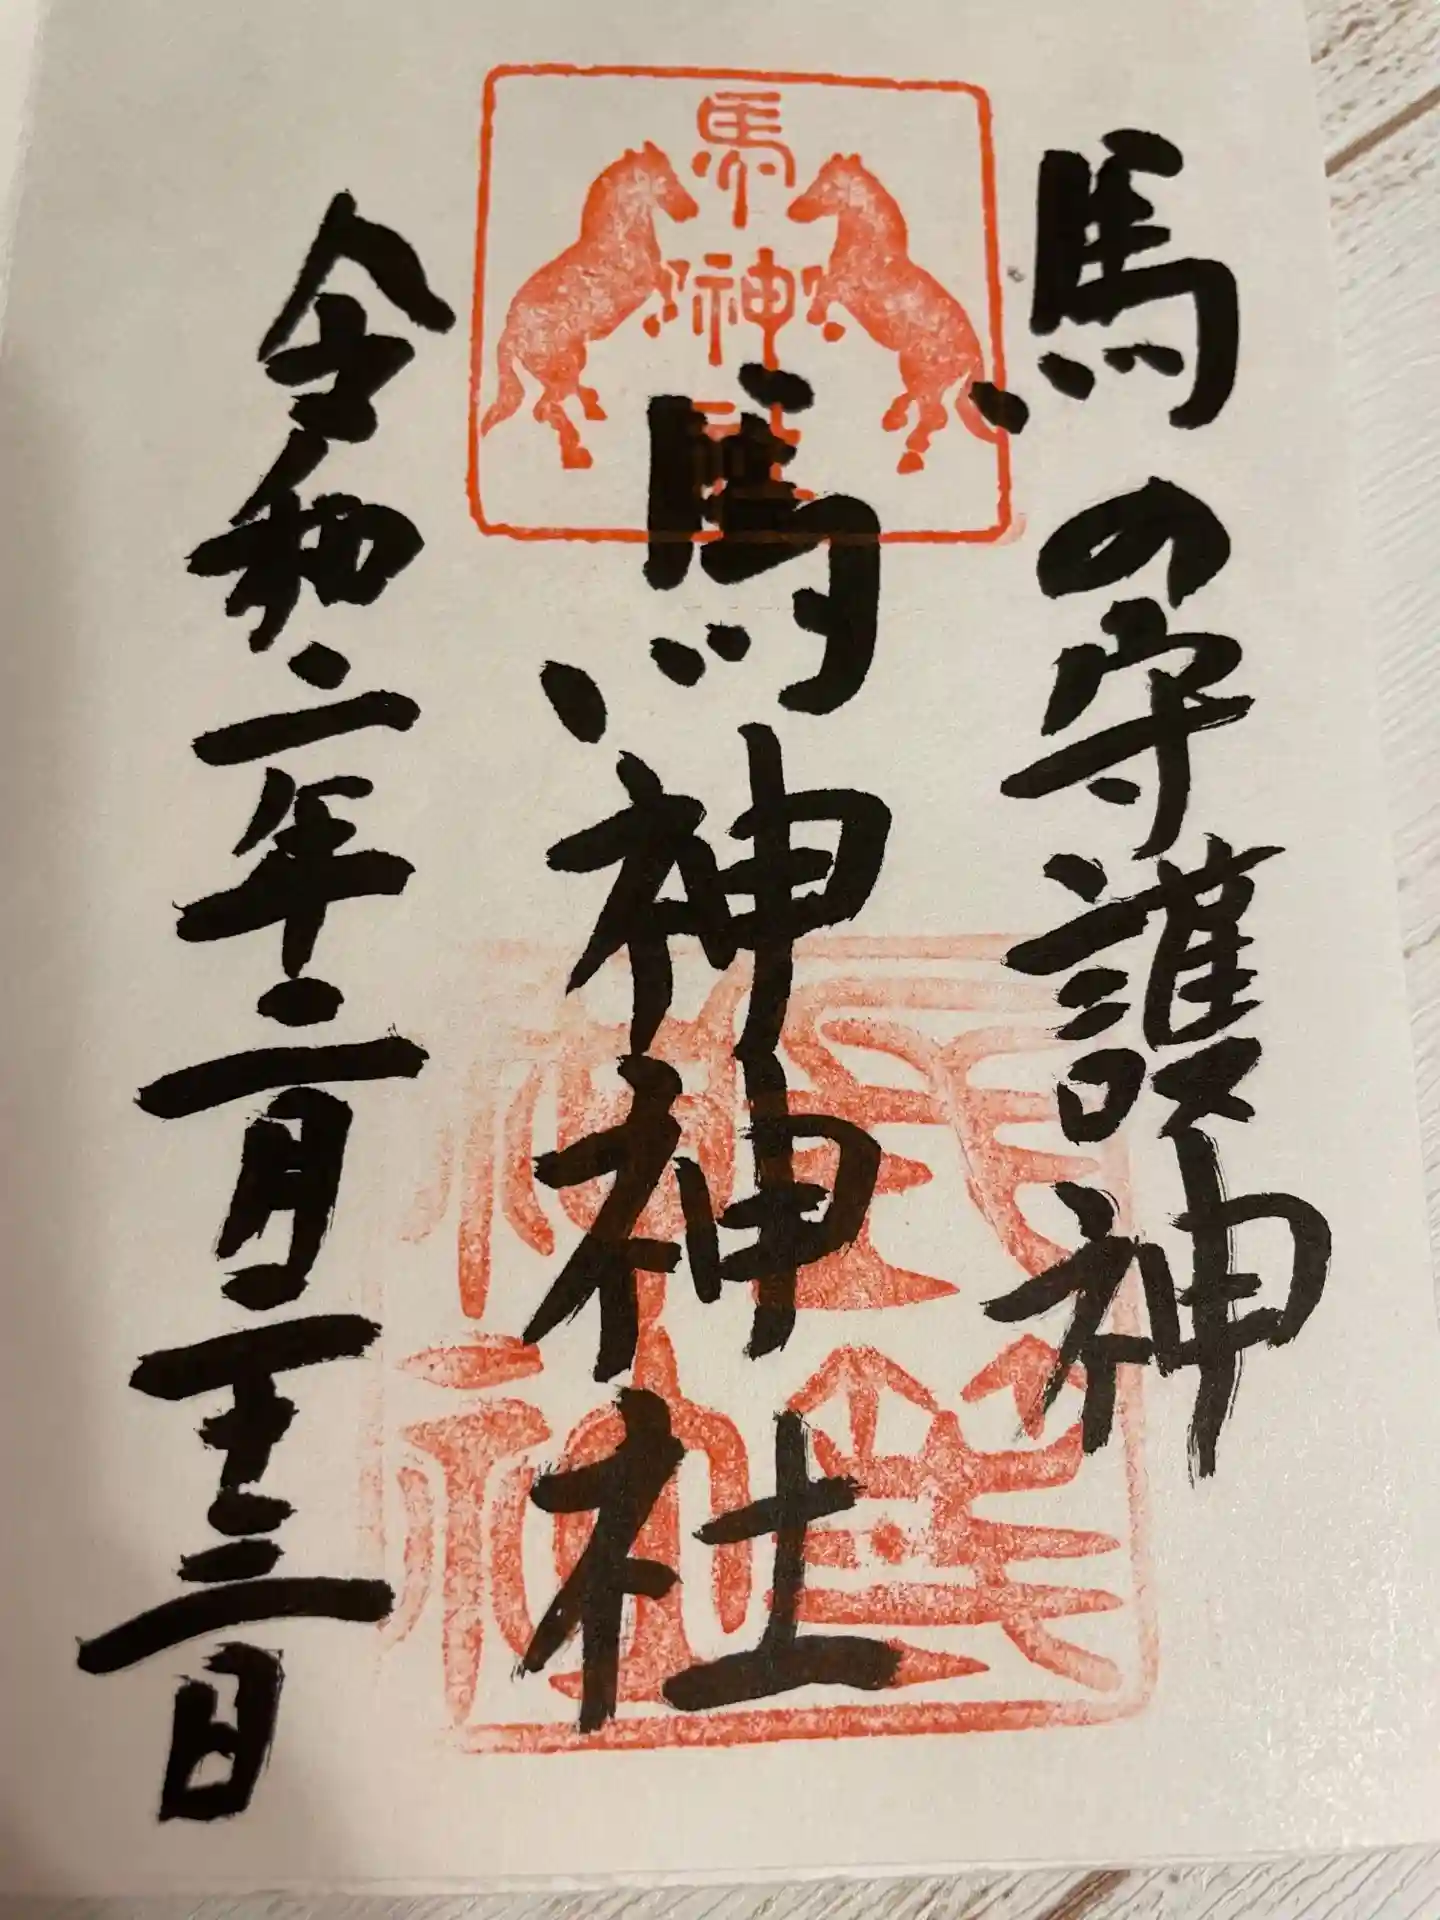 馬の守護神
馬神
馬神神社
令和二年二月二十三日